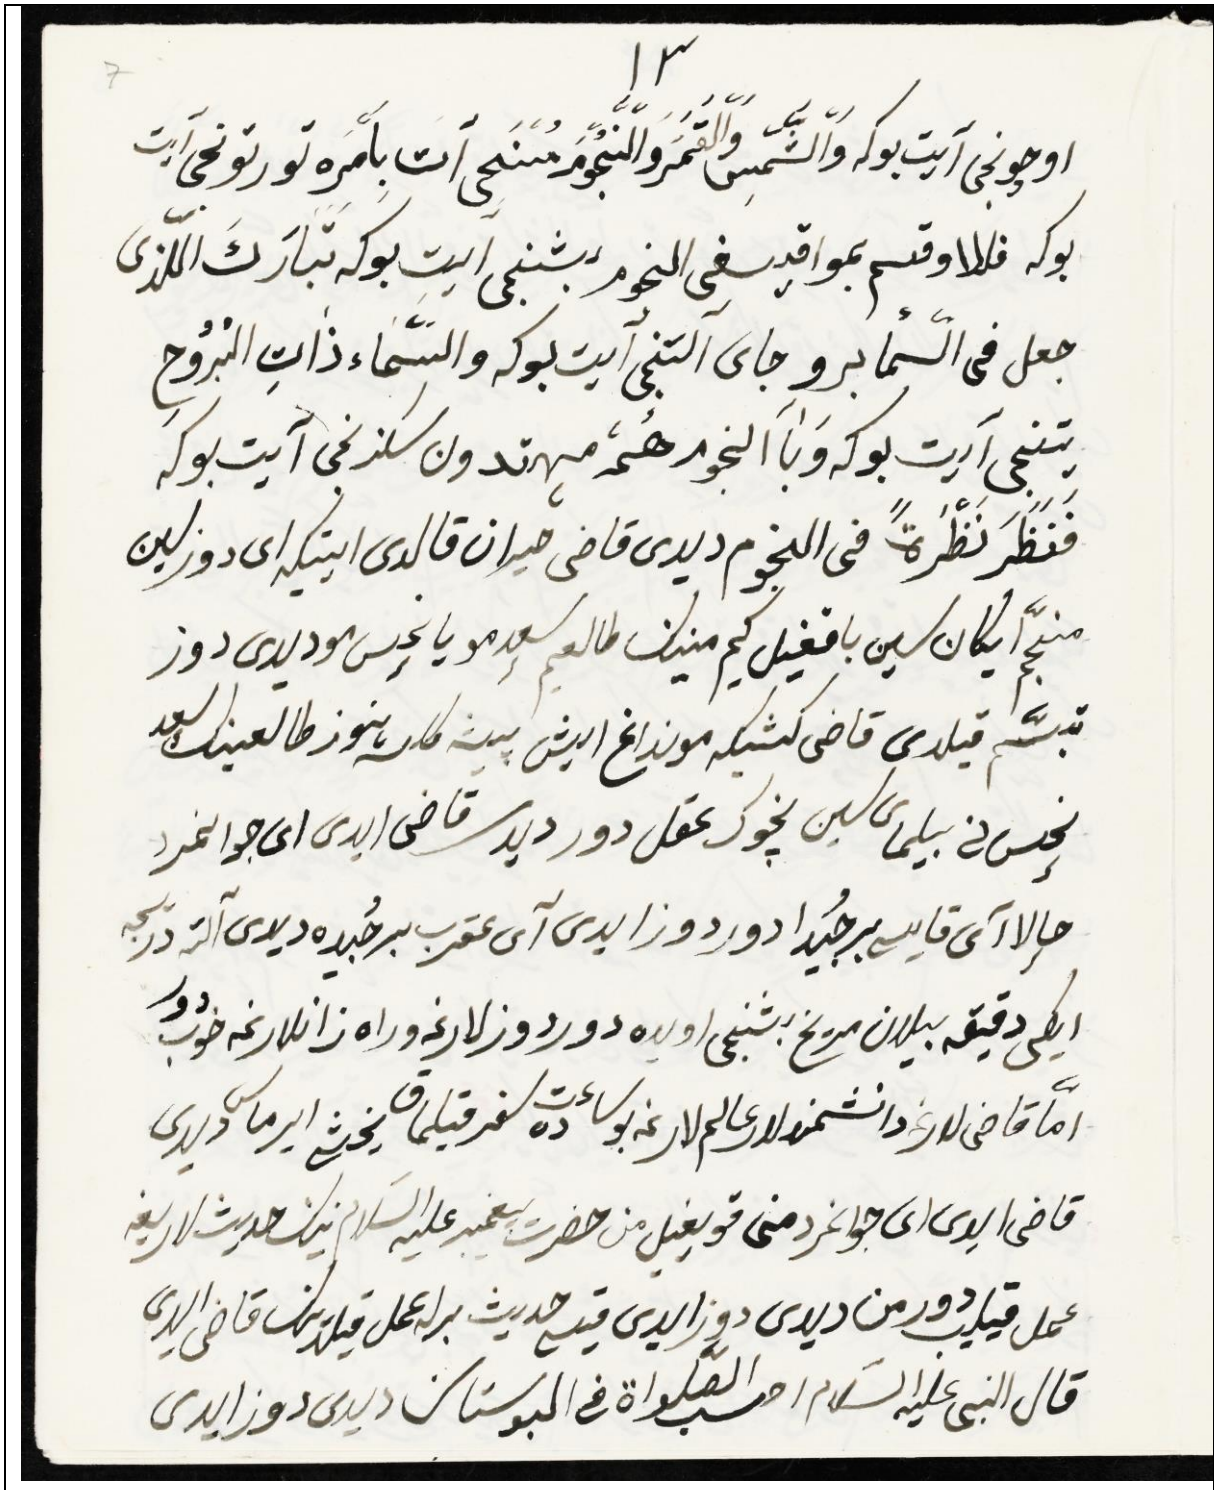 7
١٣
اوچونجی آیت بوکه وَالشَّمْسِ وَالْقَمَرَ وَالنُّجُوْمَ مُسَخَّرَاتٍ بِاَمَرَه تورتونجی آیت
بوکه فلااوقسم بمواقیع النجوم بشنجی آیت بوکه تَبَارَكَ الَّلذی
جعل فی السّما بروجای آلتنجی آیت بوکه والسَّمَاء ذَاتِ الْبُرُوْجِ
یتنجی آیت بوکه وَبِاَالنجوم هُمْ یهتدون سکزنجی آیت بوکه
فَنَظَرَ نَظْرَةً فی النجوم دیدی قاضی حیران قالدی ایتیکه ای دوز سین
منجّم ایکان سین باقغیل کیم مینینک طالعیم سعدمو یا نحِس مو دیدی دوز
تبسّم قیلدی قاضی کشیکه مونداغ ایش پیشه هنوز طالعینک سعد
نحِس نی بیلمای سین نچوک عقل دور دیدی قاضی ایدی ای جوانمرد
حالا آی قایسی برجیدا دور دوز ایدی آی عقرب برجیده دیدی آلته درجه
ایکی دقیقه بیلان مریخ بشنجی اویده دور دوزلارغه وراه زانلارغه خوب دور
امّا قاضی لارغه دانشمندلار عالم لارغه بوساعت ده سفر قیلماق یخشی ایرماس دیدی
قاضی ایدی ای جوانمرد منی قویغیل من حضرت پیغمبر علیه السلام نینک حدیث لاریغه
عمل قیلیب دورمن دیدی دوز ایدی قیسی حدیث برله عمل قیلدینک قاضی ایدی
قال النبی علیه السّلام احسب الصّلواة فی البوستان دیدی دوز ایدی